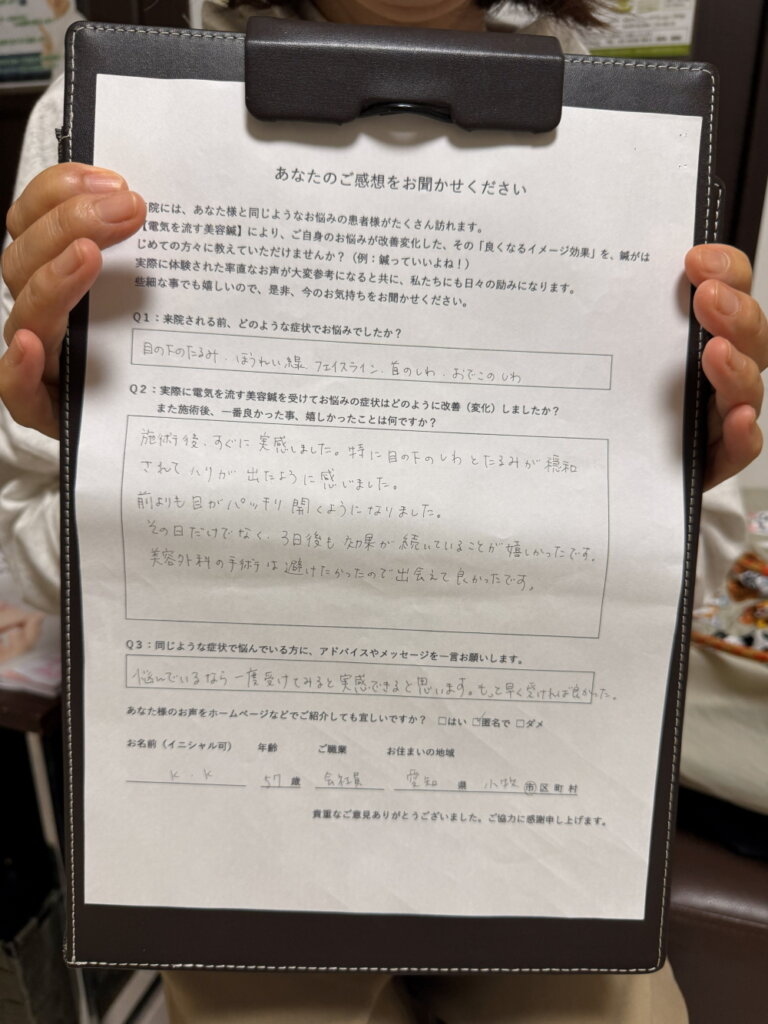 あなたのご感想をお聞かせください
院には、あなた様と同じようなお悩みの患者様がたくさん訪れます。
【電気を流す美容鍼】により、ご自身のお悩みが改善変化した、その「良くなるイメージ効果」を、鍼がは
じめての方々に教えていただけませんか？（例：鍼っていいよね！）
実際に体験された率直なお声が大変参考になると共に、私たちにも日々の励みになります。
些細な事でも嬉しいので、是非、今のお気持ちをお聞かせください。
Q1：来院される前、どのような症状でお悩みでしたか？
目の下のたるみ．ほうれい線．フェイスライン．首のしわ．おでこのしわ
Q2：実際に電気を流す美容鍼を受けてお悩みの症状はどのように改善（変化）しましたか？
また施術後、一番良かった事、嬉しかったことは何ですか？
施術後、すぐに実感しました。特に目の下のしわとたるみが緩和
されてハリが出たように感じました。
前よりも目がパッチリ開くようになりました。
その日だけでなく、3日後も効果が続いていることが嬉しかったです。
美容外科の手術は避けたかったので出会えて良かったです。
Q3：同じような症状で悩んでいる方に、アドバイスやメッセージを一言お願いします。
悩んでいるなら一度受けてみると実感できると思います。もっと早く受ければ良かった。
あなた様のお声をホームページなどでご紹介しても宜しいですか？ □はい ☑匿名で □ダメ
お名前（イニシャル可） 年齢 ご職業 お住まいの地域
K．K 57歳 会社員 愛知県 小牧市区町村
貴重なご意見ありがとうございました。ご協力に感謝申し上げます。